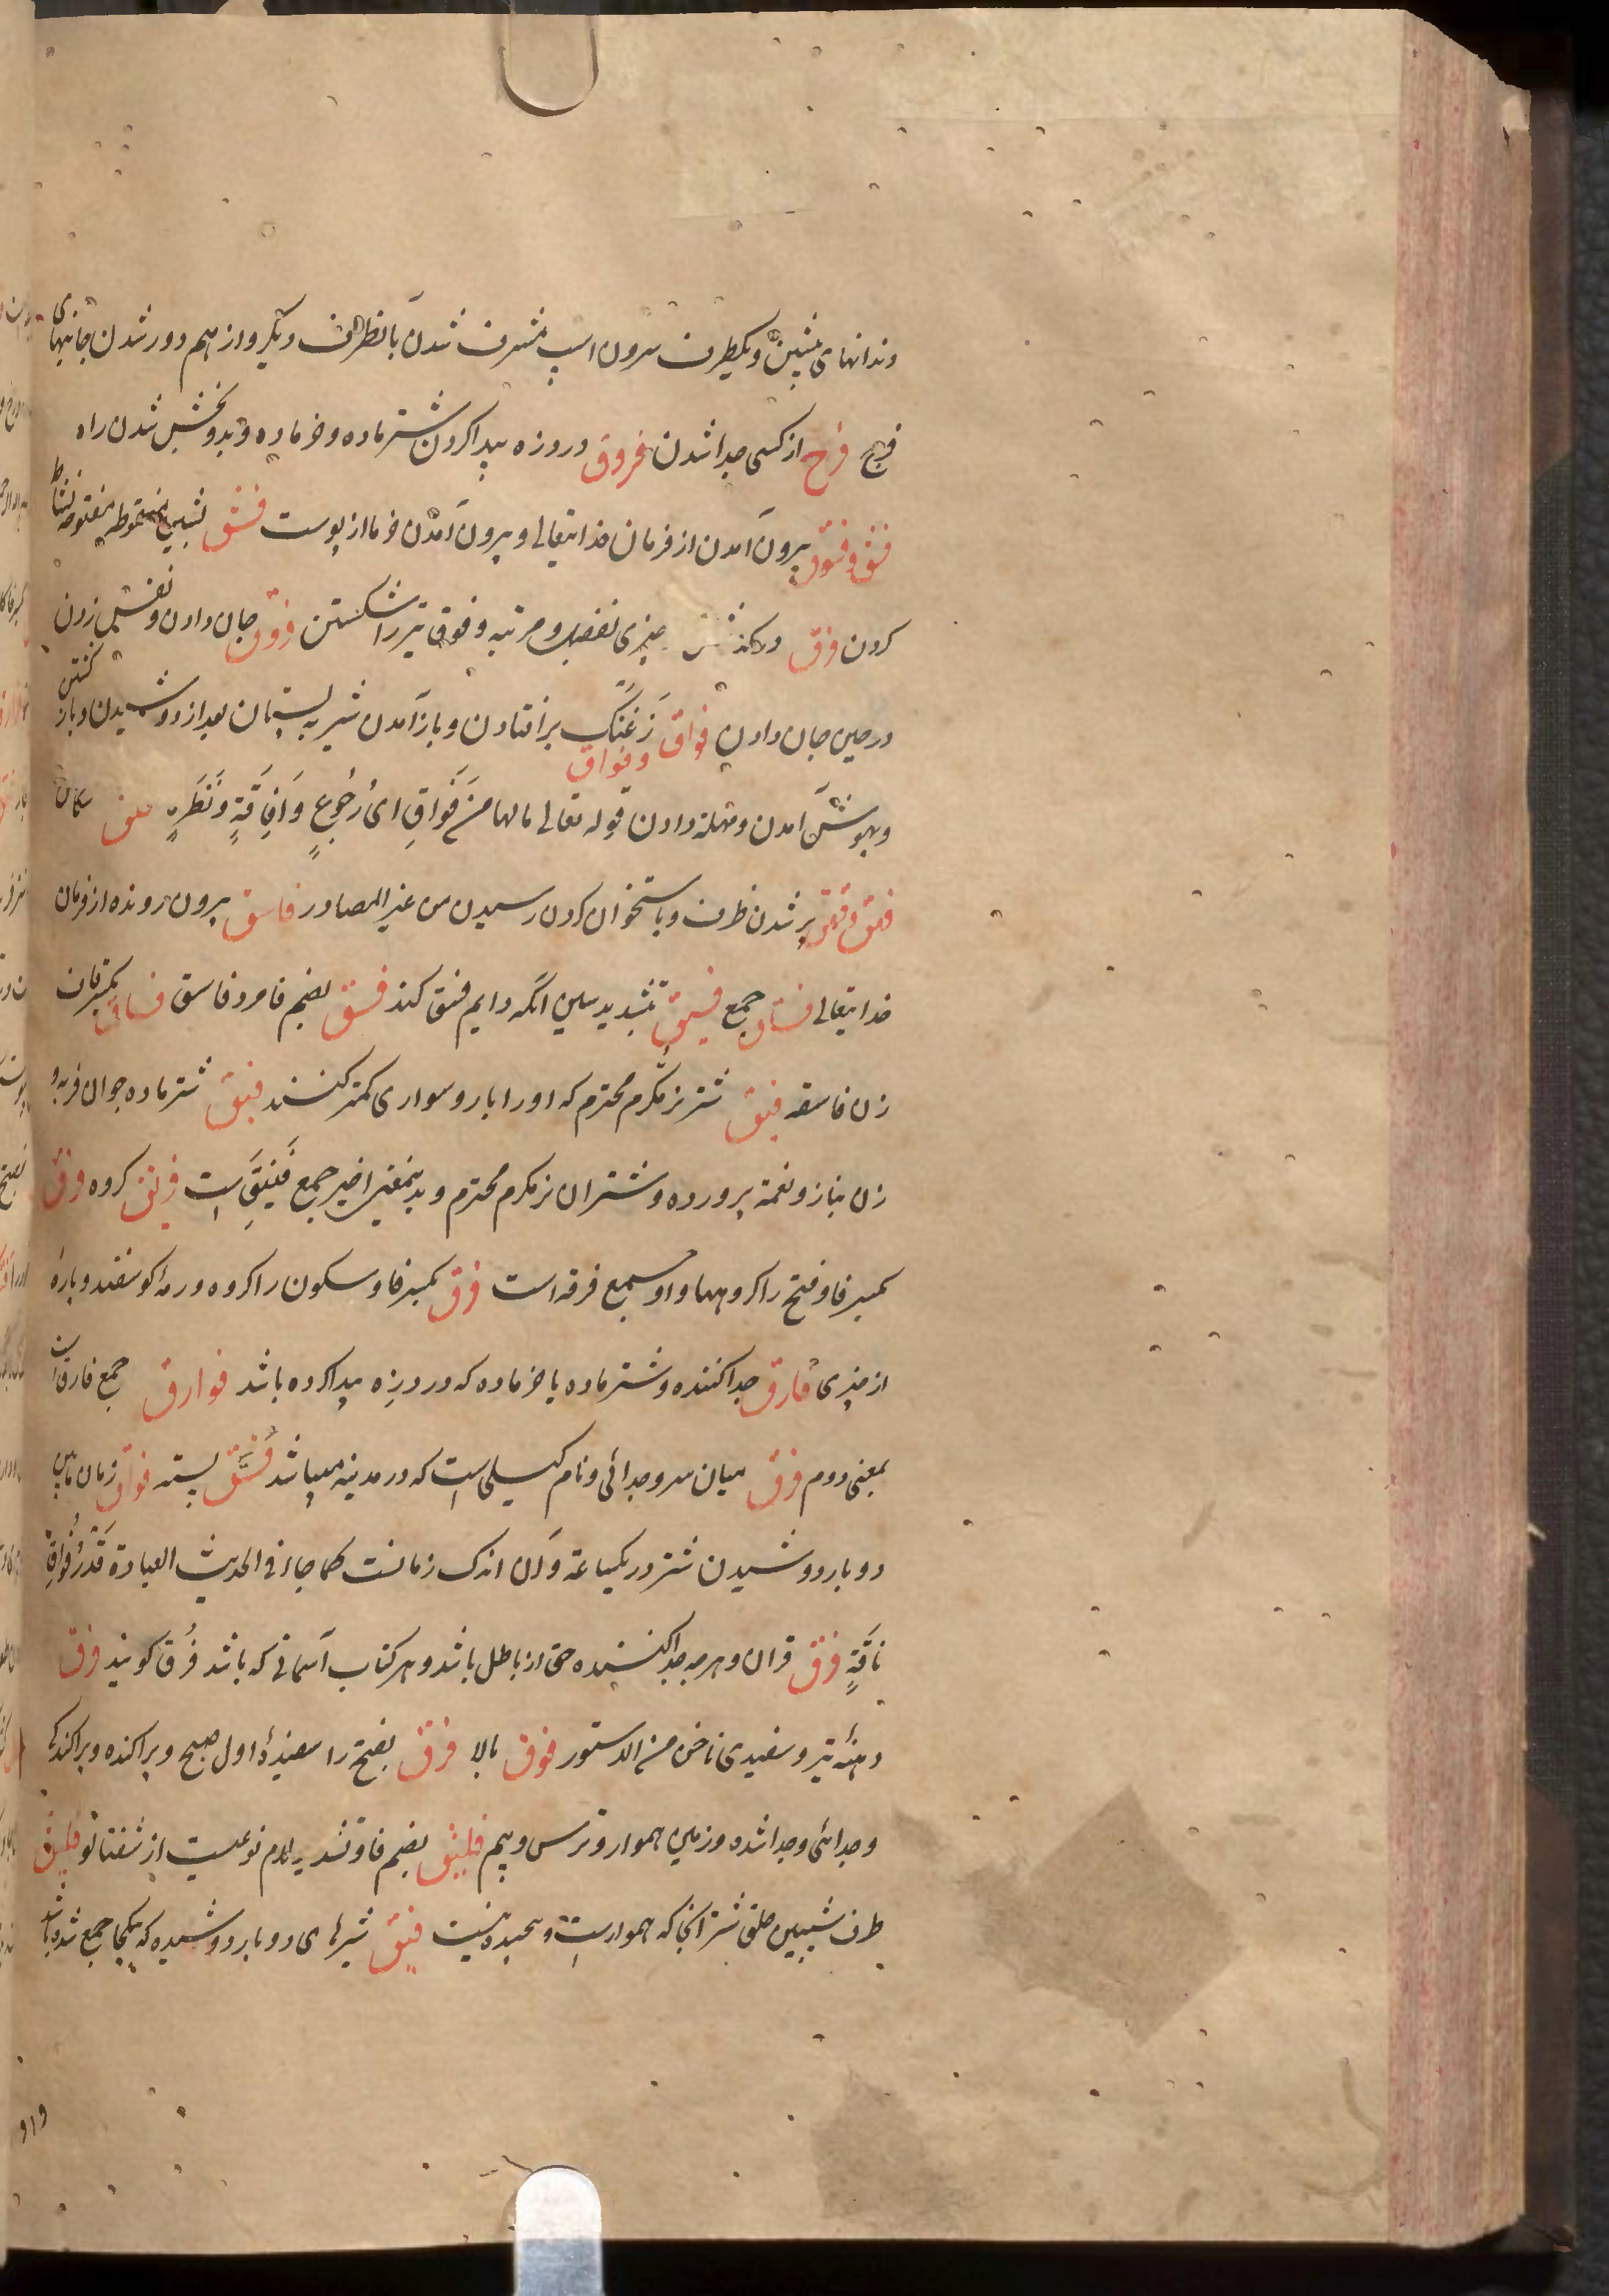 دندانهای پیشین و یکطرف سرون اسپ مشرف شدن بانطرف دیگر و از هم دور شدن جانبهای
فرج فرح از کسی جدا شدن فروق در روزه پیدا کردن شتر ماده و خر ماده و بدو بخش شدن راه
فسق و فسوق بیرون آمدن از فرمان خدایتعالی و بیرون آمدن خرما از پوست فشق بشین منقوطه مفتوحه نشاط
کردن فوق درگذشتن چیزی بفضل و مرتبه و فوق تیر را شکستن فووق جان دادن و نفس زدن
در حین جان دادن فواق و فواق زغنک بر افتادن و باز آمدن شیر به پستان بعد از دوشیدن و باز گشتن
و بهوش آمدن و مهلة دادن قوله تعالی مالها من فَوَاقِ ای رُجُوعٍ وَ اِفَاقَةٍ وَنَظَرَةٍ
فهق و فهق پر شدن ظرف و باستخوان گردن رسیدن من غیر المصادر فاسق بیرون رونده از فرمان
خدایتعالی فساق جمع فسیق بتشدید سین انکه دایم فسق کند فسق بضم فا مرد فاسق فساق بکسر قاف
زن فاسقه فنیق شتر نر مکرم محترم که او را بار و سواری کمتر کنند فنق شتر ماده جوان فربه و
زن بناز و نعمة پرورده و شتران نر مکرم محترم و بدینمعنی اخیر جمع فَنِیق است فریق کروه فرق
بکسر فا و فتح را کروهها و او جمع فرقه است فرق بکسر فا و سکون را کروه و رمه کوسفند و پارهٔ
از چیزی فارق جدا کننده و شتر ماده یا خر ماده که درد زه پیدا کرده باشد فوارق جمع فارق است
بمعنی دوم فرق میان سر و جدائی و نام کیلی است که در مدینه میباشد فُستَق پسته فواق زمان مابین
دو بار دوشیدن شتر در یکساعة و آن اندک زمانست کما جاء فی الحدیث العیادة قَدْرُ فُوَاقِ
نَاقَةٍ فرق قران و هرچه جدا کننده حق از باطل باشد و هر کتاب آسمانی که باشد فُرق کویند فوق
دهنهٔ تیر و سفیدی ناخن من الدستور فوق بالا فرق بفتح را سفیدهٔ اول صبح و پراکنده و پراکندگی
و جدائی و جدا شده و زمین هموار و ترس و بیم فلیق بضم فا و تشدید لام نوعیست از شفتالو فلیق
طرف شیبین حلق شتر انجا که هموار است و پیچیده نیست فیق شیرهای دو بار دوشیده که یکجا جمع شده باشد